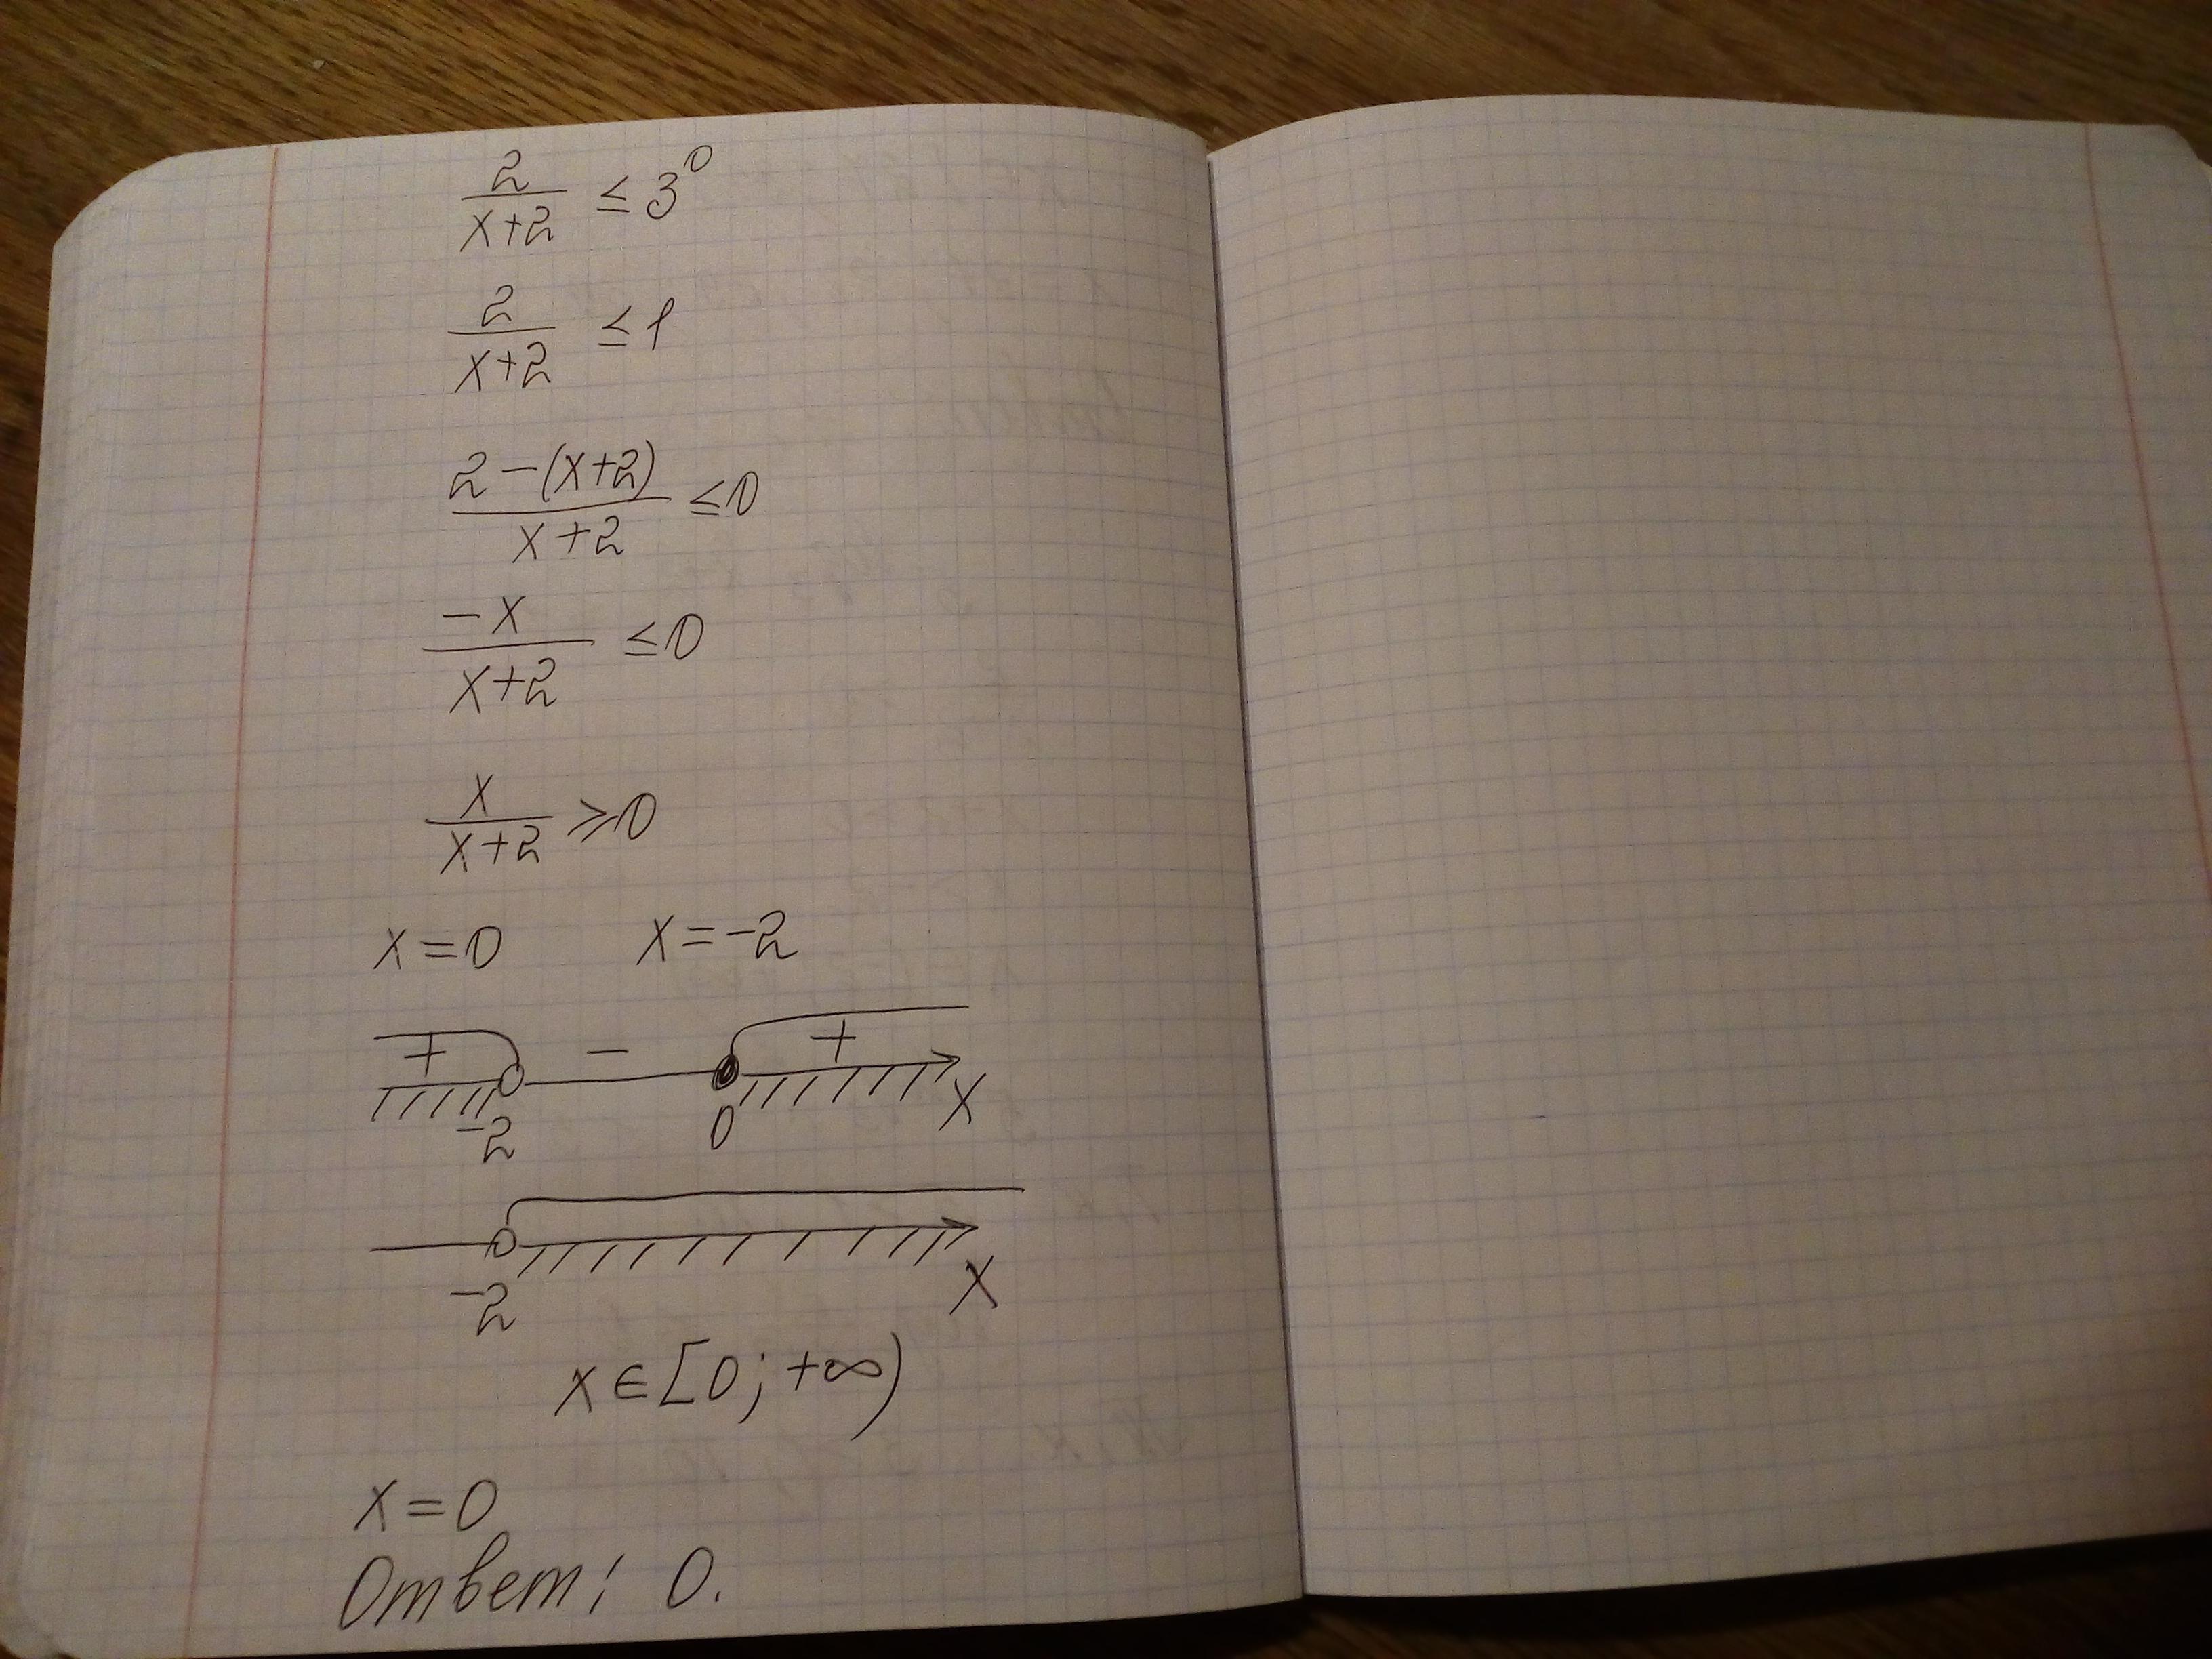 2/(x+2) ≤ 3⁰
2/(x+2) ≤ 1
(2-(x+2))/(x+2) ≤ 0
-x/(x+2) ≤ 0
x/(x+2) ⩾ 0
x=0 x=-2
+ - +
-2 0 x
-2 x
x∈[0;+∞)
x=0
Ответ: 0.